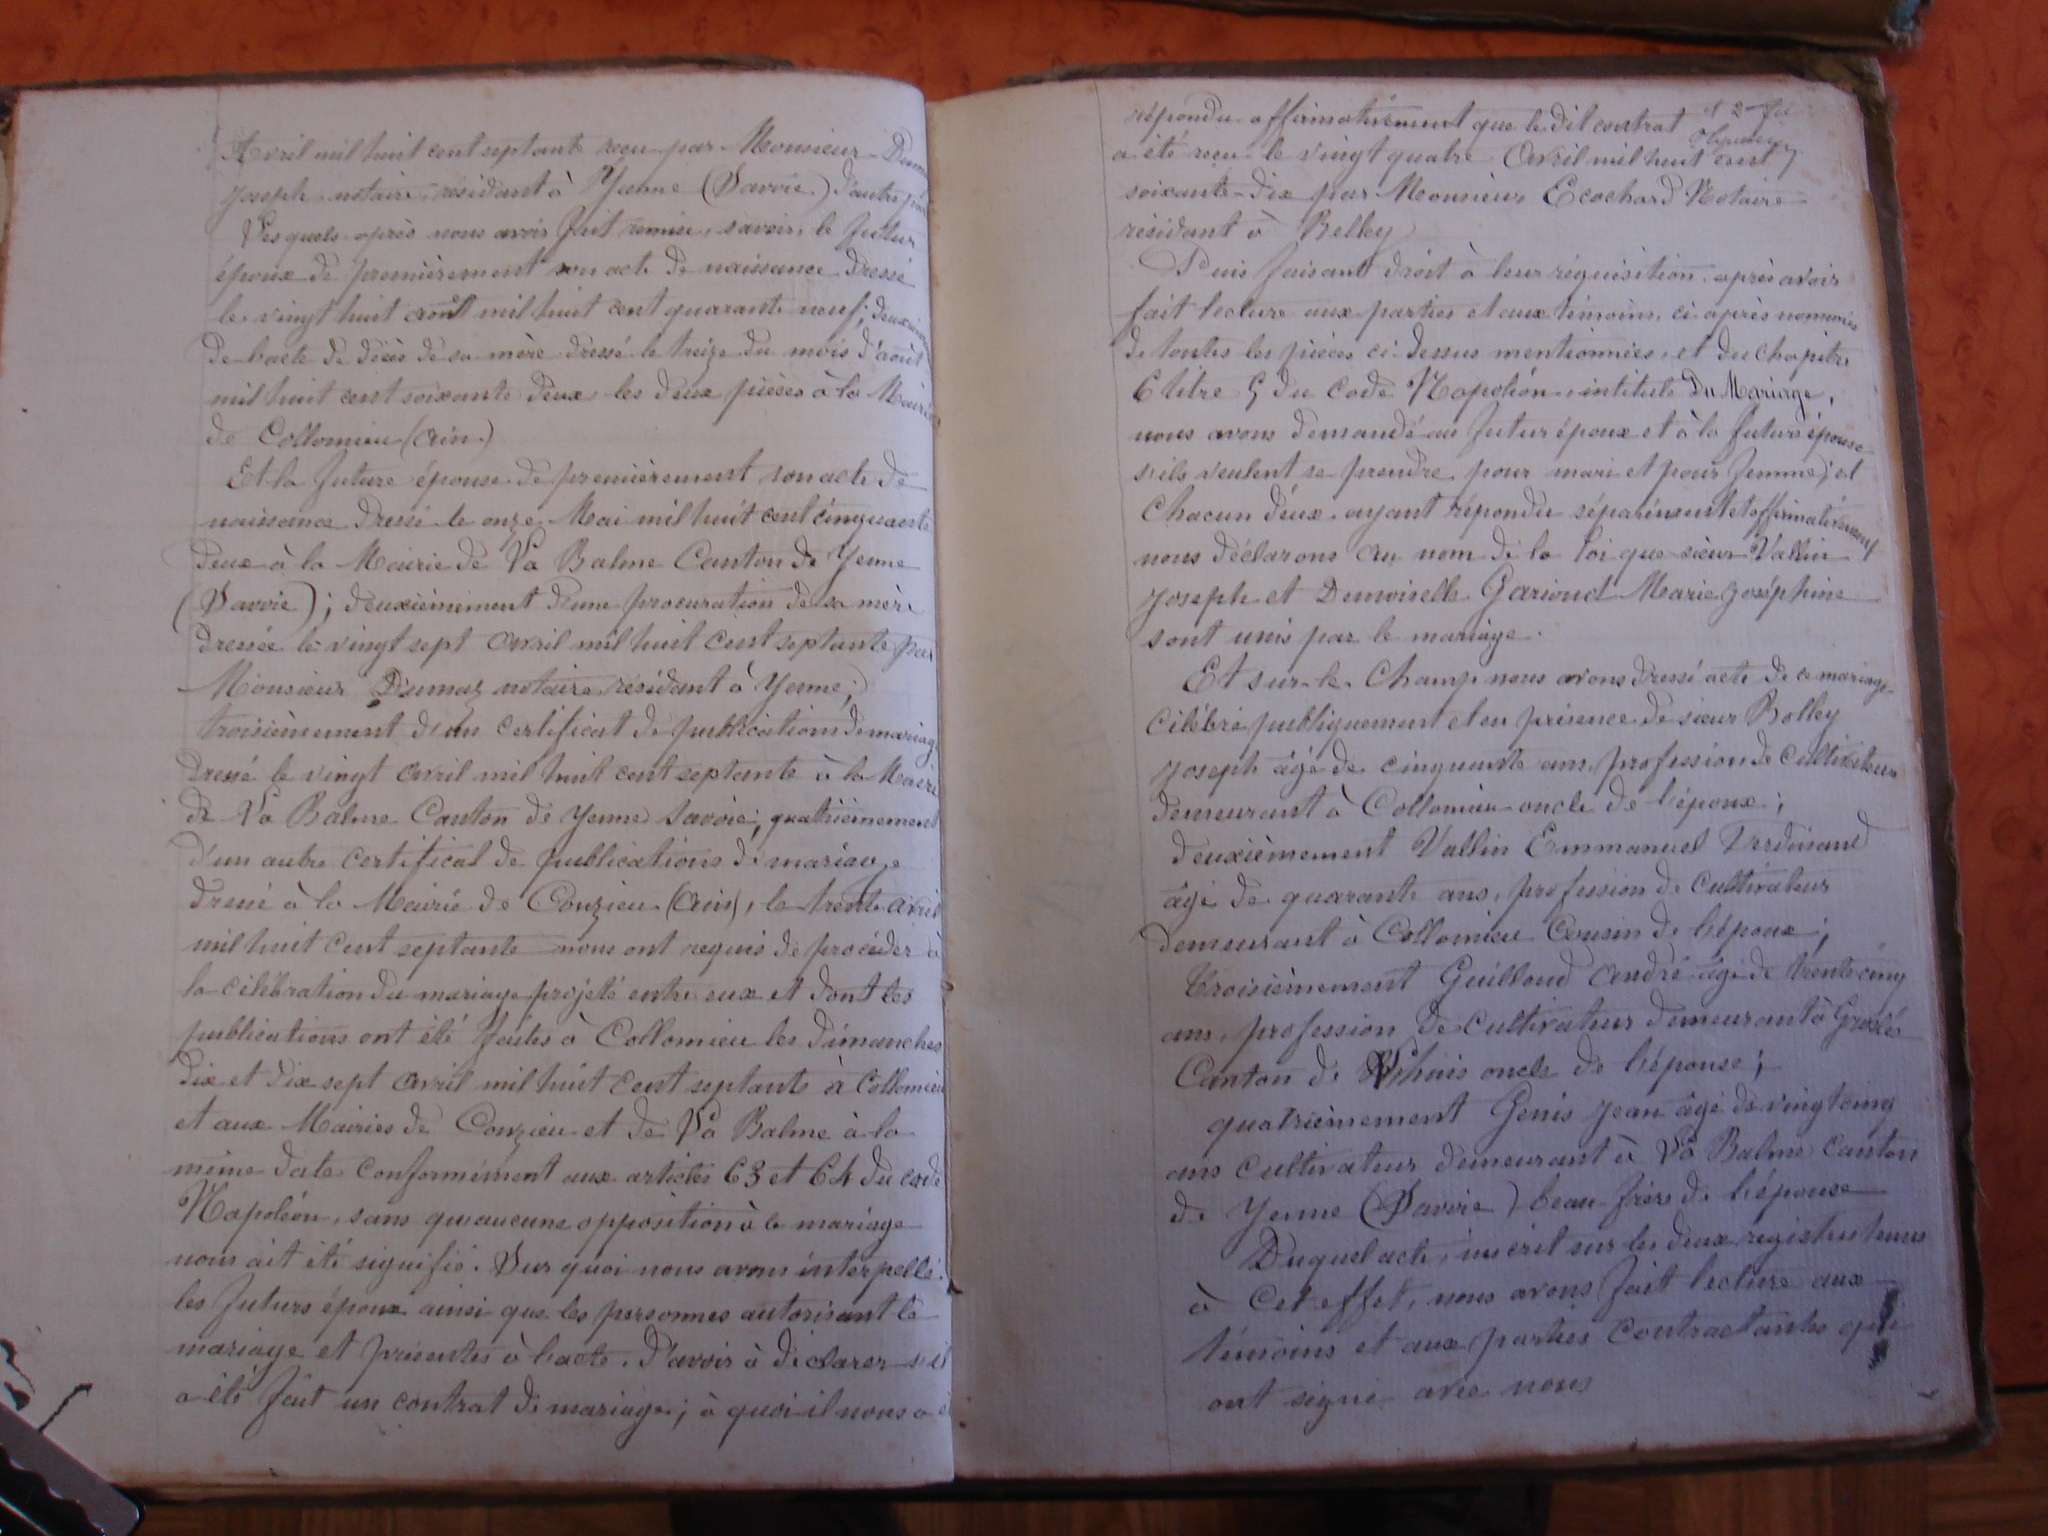 Avril mil huit cent septante reçu par Monsieur
Joseph notaire, résidant à Yenne (Savoie) d'autre part
Lesquels après nous avoir fait remise, savoir, le futur
époux de premièrement son acte de naissance dressé
le vingt huit août mil huit cent quarante neuf; deuxièmement
de l'acte de décès de sa mère dressé le treize du mois d'août
mil huit cent soixante deux les deux pièces à la Mairie
de Collomieu (Ain.)
Et la future épouse de premièrement son acte de
naissance dressé le onze Mai mil huit cent cinquante
deux à la Mairie de La Balme Canton de Yenne
(Savoie); deuxièmement d'une procuration de sa mère
dressée le vingt sept Avril mil huit cent septante par
Monsieur Dumaz notaire résidant à Yenne;
troisièmement d'un certificat de publications de mariage
dressé le vingt Avril mil huit cent septante à la Mairie
de La Balme Canton de Yenne Savoie; quatrièmement
d'un autre certificat de publications de mariage
dressé à la Mairie de Conzieu (Ain), le trente Avril
mil huit cent septante nous ont requis de procéder à
la célébration du mariage projeté entre eux et dont les
publications ont été faites à Collomieu les dimanches
dix et dix sept Avril mil huit cent septante à Collomieu
et aux Mairies de Conzieu et de La Balme à la
même date conformément aux articles 63 et 64 du code
Napoléon, sans qu'aucune opposition à ce mariage
nous ait été signifié. Sur quoi nous avons interpellé
les futurs époux ainsi que les personnes autorisant le
mariage et présentes à l'acte, d'avoir à déclarer s'il
a été fait un contrat de mariage; à quoi il nous a
répondu affirmativement que le dit contrat
a été reçu le vingt quatre Avril mil huit cent
soixante-dix par Monsieur Ecochard Notaire
résidant à Belley
Puis faisant droit à leur réquisition, après avoir
fait lecture aux parties et aux témoins, ci-après nommés
de toutes les pièces ci-dessus mentionnées, et du chapitre
6 titre 5 du Code Napoléon, intitulé Du Mariage,
nous avons demandé au futur époux et à la future épouse
s'ils veulent se prendre pour mari et pour femme; et
Chacun d'eux ayant répondu séparément et affirmativement
nous déclarons au nom de la loi que sieur Vallin
Joseph et Demoiselle Garioud Marie Joséphine
sont unis par le mariage.
Et sur-le-Champ nous avons dressé acte de ce mariage
célébré publiquement et en présence de sieur Bolley
Joseph âgé de cinquante ans, profession de cultivateur
demeurant à Collomieu oncle de l'époux;
deuxièmement Vallin Emmanuel Ferdinand
âgé de quarante ans, profession de cultivateur
demeurant à Collomieu Cousin de l'époux;
Troisièmement Guilloud André âgé de trente cinq
ans, profession de cultivateur demeurant à Groslée
Canton de Lhuis oncle de l'épouse;
quatrièmement Genis Jean âgé de vingt cinq
ans cultivateur demeurant à La Balme canton
de Yenne (Savoie) beau frère de l'épouse
Duquel acte, inscrit sur les deux registres tenus
à Cet effet, nous avons fait lecture aux
témoins et aux parties contractantes qui
ont signé avec nous